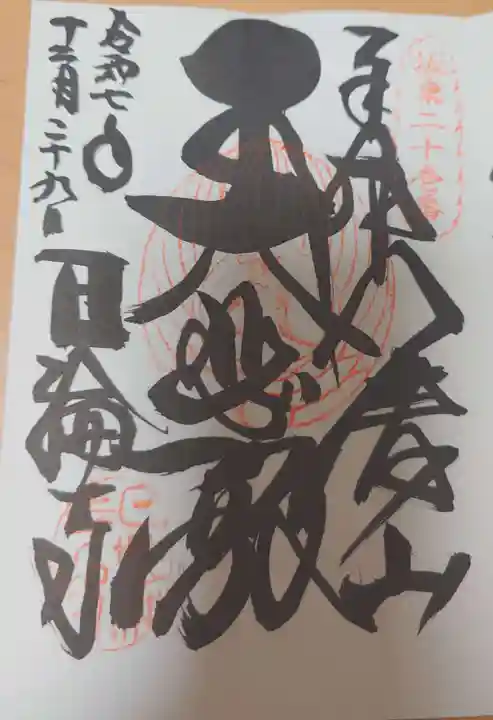 坂東二十壱番
奉拝
八溝山
大悲殿
令和七年
十二月二十九日
日輪寺